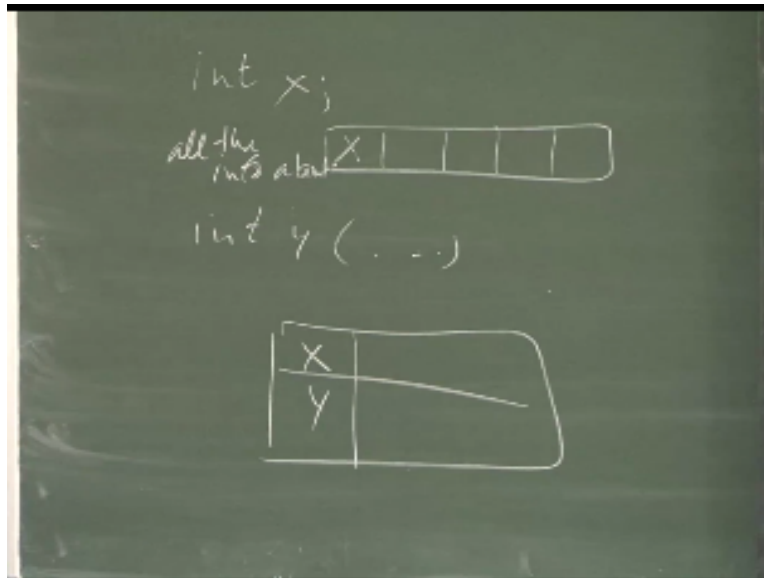 int x;
all the
info about
X
int y (...)
X
Y